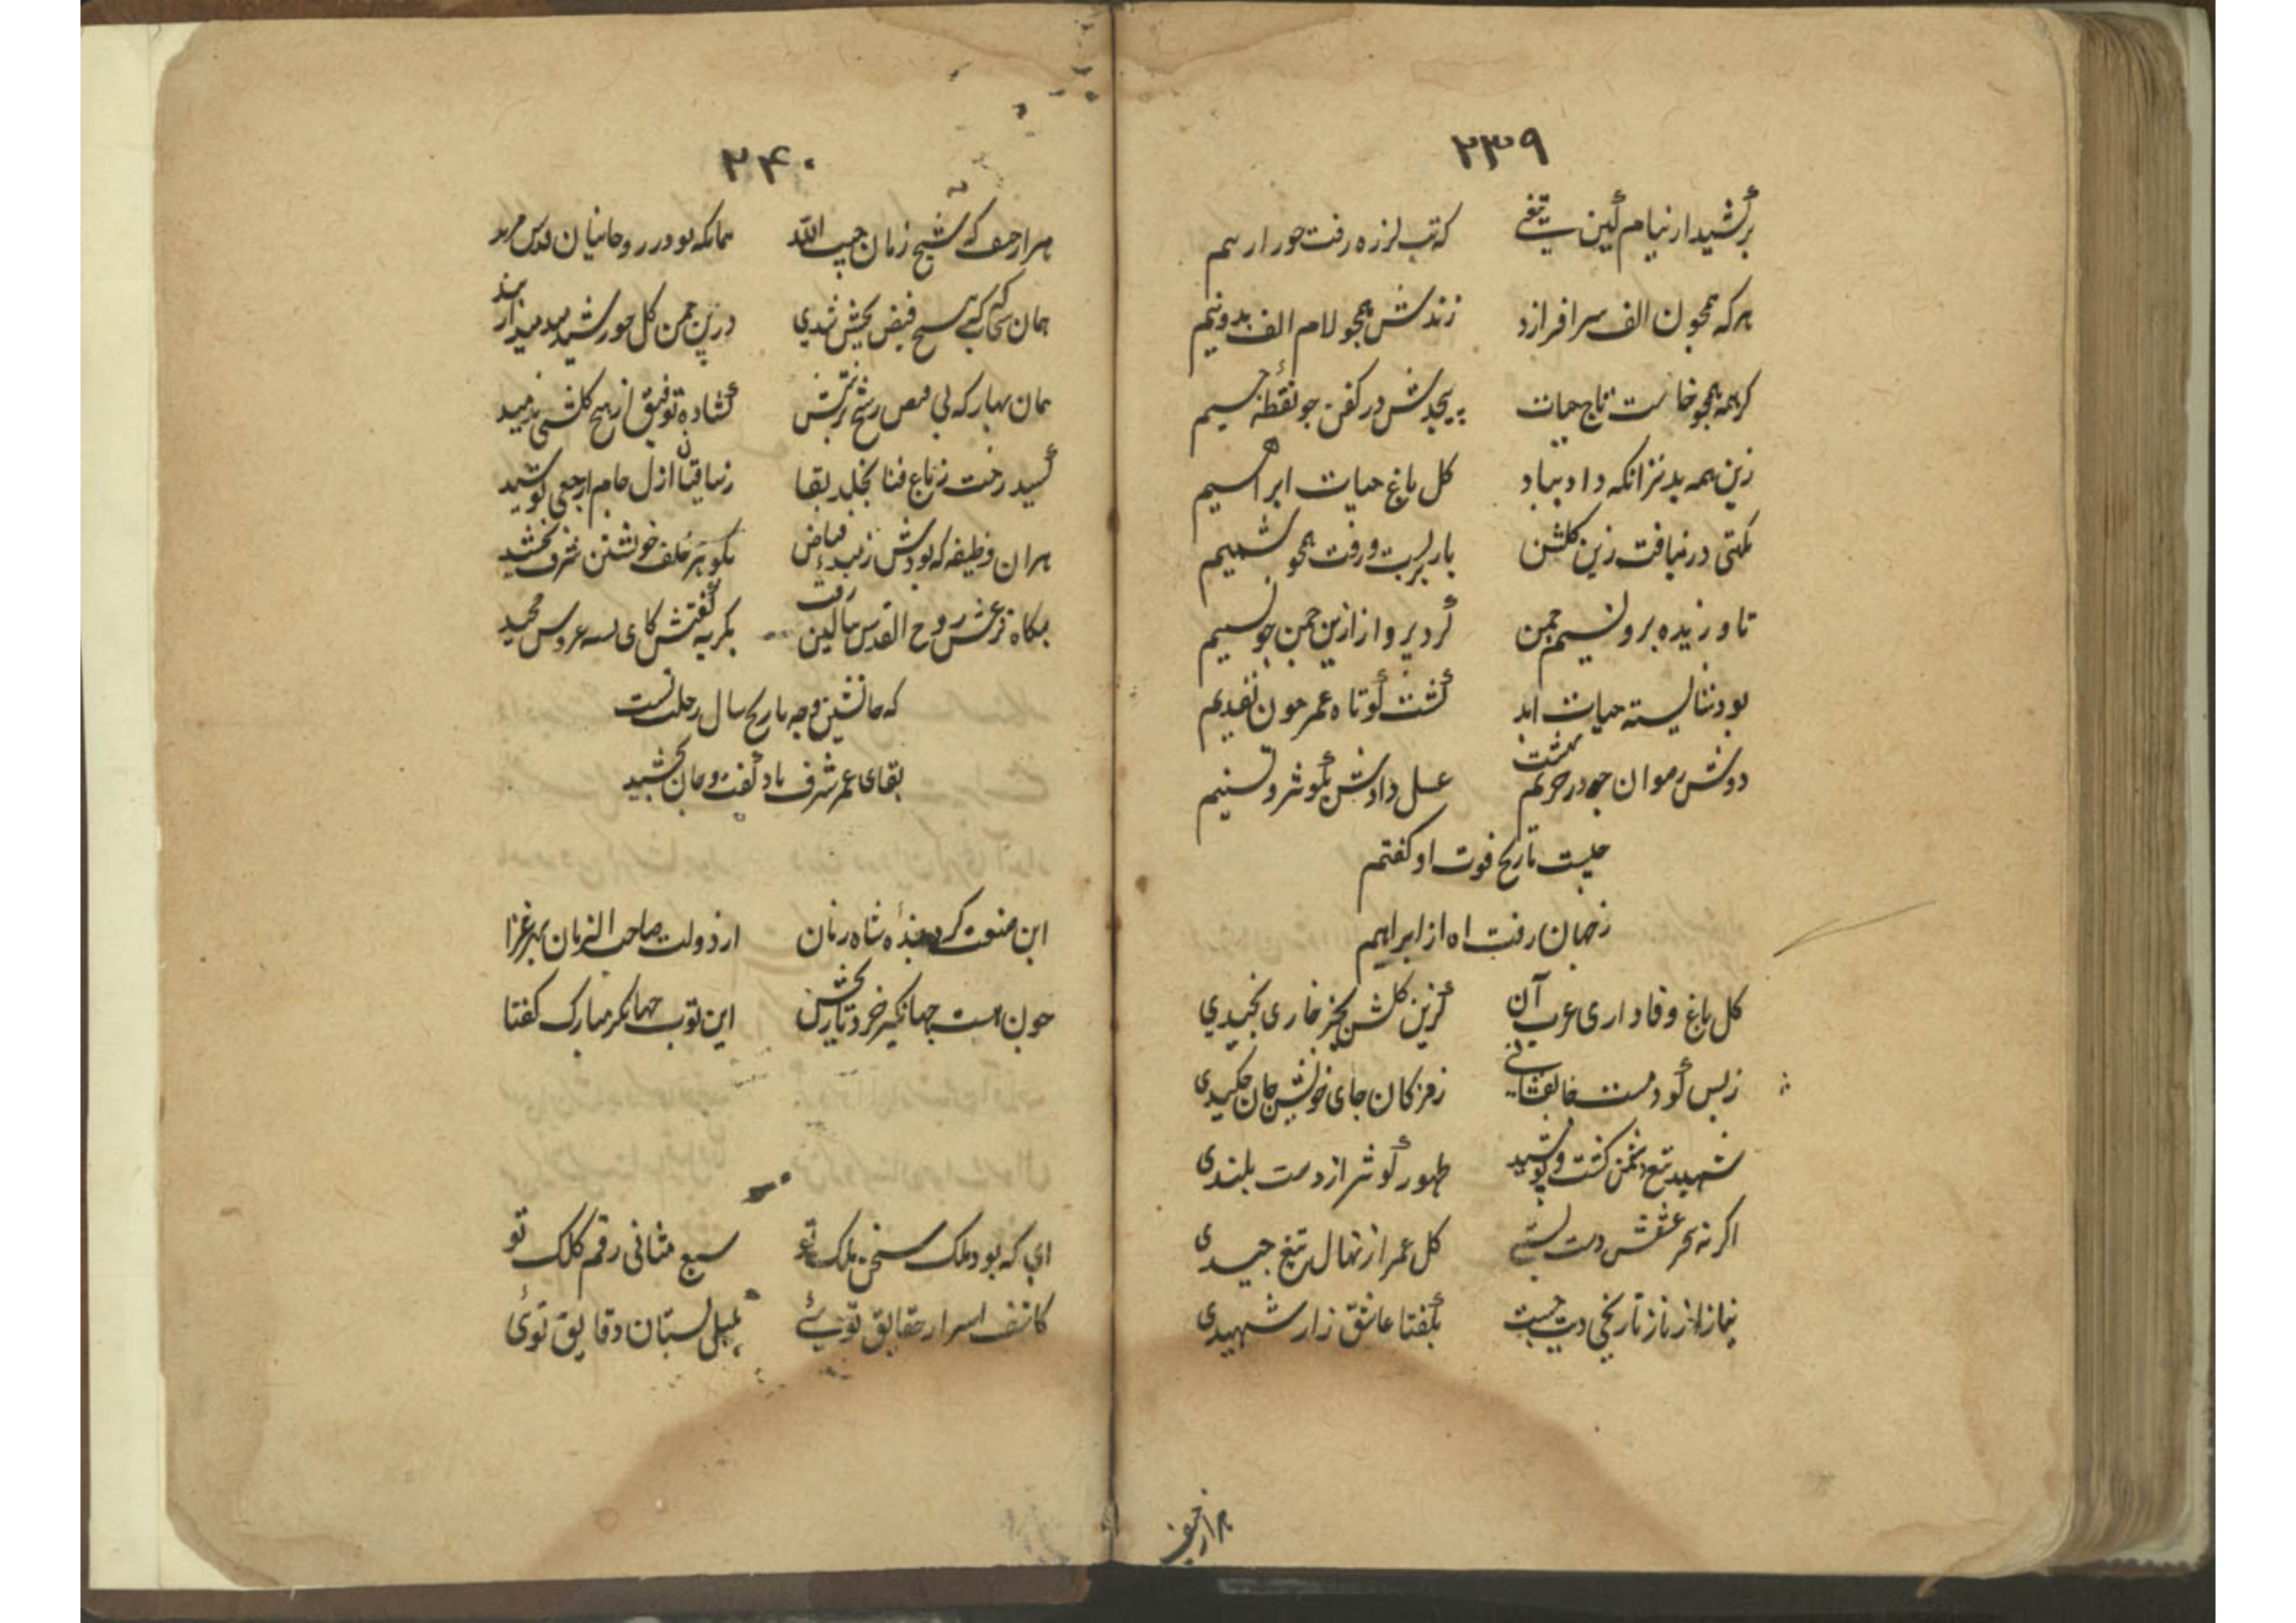 ۲۳۹
برکشید از نیام کین تیغی که تب لرزه رفت خور از بیم
هر که همچون الف سر افرازد زندش همچو لام الف بدونیم
گر همه همچو خاست تاج حیات پیچدش در کفن چو نقطه جیم
زین همه بدتر انکه داد بباد کل باغ حیات ابراهیم
نکهتی در نیافت زین کلشن بار بربست و رفت همچو شمیم
تا وزیده برو نسیم چمن کرد پرواز ازین چمن چو نسیم
بود شایسته حیات ابد کشت کوتاه عمر چون تقدیم
دوش رضوان چو در حریم بهشت غسل دادش بکوثر و تسنیم
چیست تاریخ فوت او کفتم
ز جهان رفت اه از ابراهیم
کل باغ وفاداری عرب آن کزین کلشن بجز خاری نچیدی
ز بس کو دست جانفشانی ز مژکان جای خونش جان چکیدی
شهید تیغ دشمن کشت و نوشید طهور کوثر از دست بلندی
اکر نه سحر عشقش دست بستی کل عمر از نهال تیغ چیدی
نیاز از ناز تاریخی چست بکفتا عاشق زار شهیدی
هزار حیف
۲۴۰
هزار حیف که شیخ زمان حبیب الله همانکه بود در روحانیان قدس مرید
همان سحاب که فیض بخش شدی درین چمن کل خورشید میدمید
همان بهار که بی فیض رشح تربیتش کشاده توفیق از هیچ کلشنی ندمید
کشید رخت ز باغ فنا بخلد بقا ز ساقیان ازل جام ارجعی نوشید
هران وظیفه که بودش ز مبدء فیاض بکوهر خلف خویشتن شرف بخشید
بکاه نزعش روح القدس ببالین رفت بکریه کفتش کای عروس مجید
که جانشین و چه تاریخ سال رحلتست
بقای عمر شرف باد کفت و جان بخشید
این صنعت کرد بنده شاه زمان از دولت صاحب الزمان بهر غزا
چون هست جهانکیر خرد تاریخش این توپ جهانکیر مبارک کفتا
ای که بود ملک سخن ملک تو سبع مثانی رقم کلک تو
کاشف اسرار حقایق تویی بلبل بستان دقایق تویی